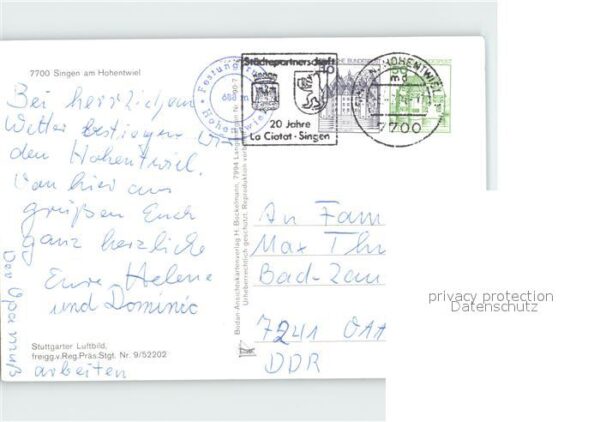 7700 Singen am Hohentwiel
Bei herrlichem
Wetter bestiegen wir
den Hohentwiel.
Von hier aus
grüßen Euch
ganz herzliche
Eure Helene
und Dominic
Der Opa muß
arbeiten
Stuttgarter Luftbild,
freigg.v.Reg.Präs.Stgt. Nr. 9/52202
Bodan-Ansichtskartenverlag H. Bockelmann, 7994 Langenargen
Urheberrechtlich geschützt. Reproduktion verboten
Festung
Hohentwiel
Städtepartnerschaft
20 Jahre
La Ciotat - Singen
HOHENTWIEL
7700
An Fam
Max Th
Bad-
7241
DDR
privacy protection
Datenschutz